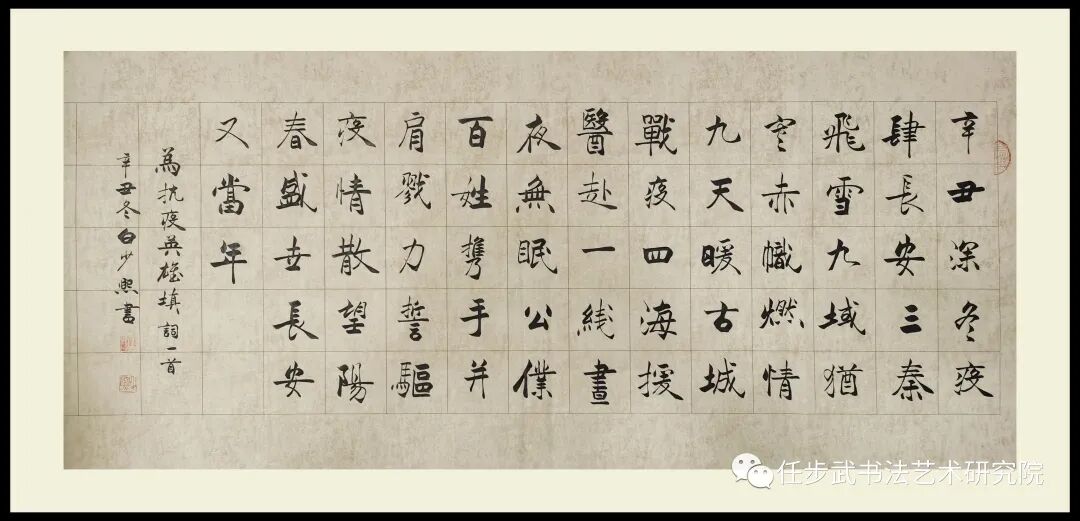 辛丑深冬疫
肆長安三秦
飛雪九域猶
寒赤幟燃情
九天暖古城
戰疫四海援
醫赴一线晝
夜無眠公僕
百姓攜手并
肩戮力誓驅
疫情散望陽
春盛世長安
又當年
為抗疫英雄填詞一首
辛丑冬白少熙書
任步武书法艺术研究院